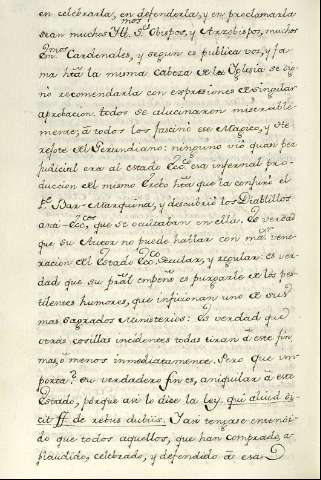 en celebrarla, en defenderla, y en proclamarla
sean muchos Yll.mos S.res Obispos, y Arzobispos, muchos
Em.mos Cardenales, y segun es publica voz, y fa-
ma h.ta la misma Cabeza de la Yglesia se dig-
nò recomendarla con expresiones de singular
aprobacion: todos se alucinaron miserable-
mente; à todos los fascinò ese Magico, y He-
refote del Gerundiano: ninguno viò quan per-
judicial era al estado Ecc.co esa infernal pro-
duccion del mismo Averno h.ta que la conjurò el
P.e Bar-Marquina, y descubriò los Diablillos
ana-Ecc.cos, que se ocultaban en ella. Es verdad
que su Autor no puede hablar con mayor vene-
racion del Estado Ecc.co Secular, y regular: es ver-
dad que su pral empeño es purgarle de los pes-
tilentes humores, que inficionan uno de sus
mas sagrados Ministerios: Es verdad que
otras cosillas incidentes todas tiran à este fin
mas, ò menos inmediatamente. Pero que im-
porta? Su verdadero fin es, aniquilar à este
Estado, porque asi lo dice la ley. qui aliud di-
cit ff. de rebus dubiis. Y asi tengase entendi-
do que todos aquellos, que han comprado, a-
plaudido, celebrado, y defendido à esa